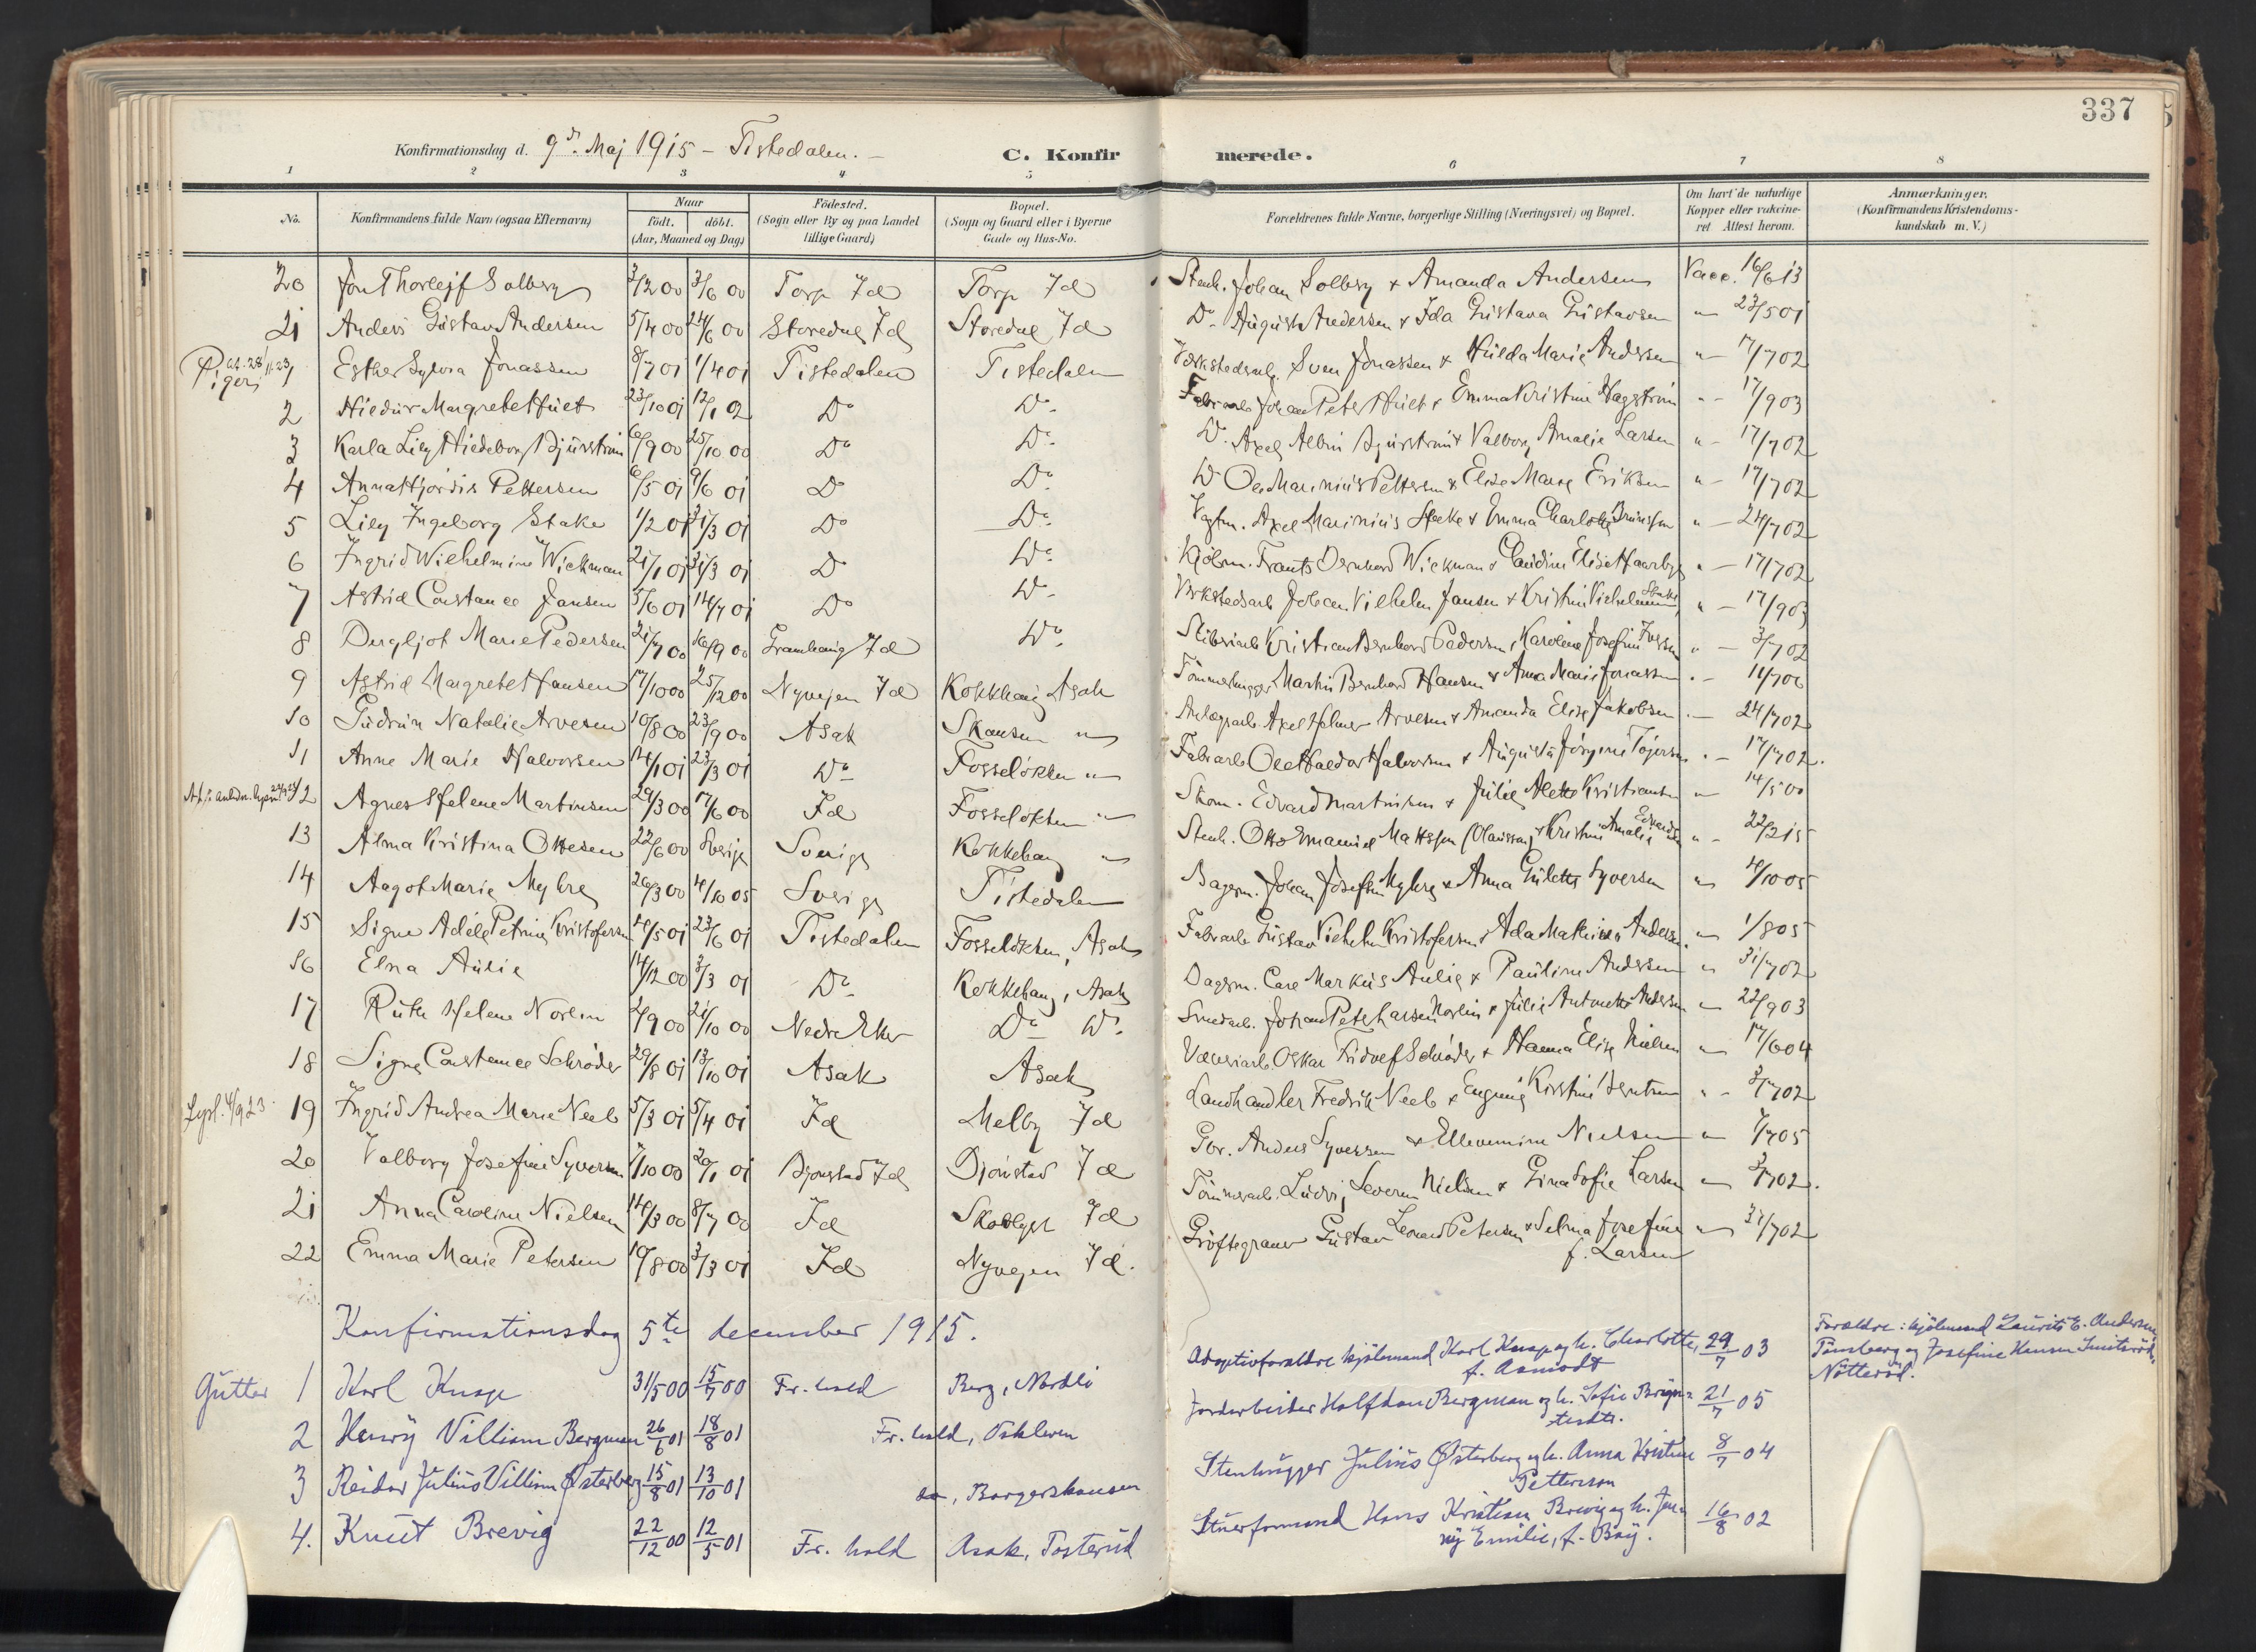 337
Konfirmationsdag d. 9de Maj 1915 - Tistedalen. -
C. Konfirmerede.
1 2 3 4 5 6 7 8
No. Konfirmandens fulde Navn (ogsaa Efternavn) Naar født. døbt. (Aar, Maaned og Dag) Fødested. (Sogn eller By og paa Landet tillige Gaard) Bopæl. (Sogn og Gaard eller i Byerne Gade og Hus-No. Forældrenes fulde Navne, borgerlige Stilling (Næringsvei) og Bopæl. Om havt de naturlige Kopper eller vakcineret Attest herom. Anmærkninger. (Konfirmandens Kristendomskundskab m. V.)
20 Jon Thorleif Solberg 3/2 00 3/6 00 Torp Id Torp Id Stenh. Johan Solberg & Amanda Andersen Vacc. 16/6 13
21 Anders Gustav Andersen 5/4 00 24/6 00 Storedal Id Storedal Id Do. August Andersen & Ida Gustava Gustavsen " 23/5 01
Piger 1 Esther Sylvia Jonassen 8/7 01 1/4 01 Tistedalen Tistedalen Værkstedsarb. Sven Jonassen & Hulda Marie Andersen " 17/7 02
2 Hildur Margrethe Hult 23/10 01 12/1 02 Do Do Fabrarb. Johan Peter Hult & Emma Kristine Hagström " 17/9 03
3 Karla Lily Hildeborg Bjurström 6/9 00 25/10 00 Do Do Do. Axel Albin Bjurström & Valborg Amalie Larsen " 17/7 02
4 Anna Hjördis Pettersen 6/5 01 9/6 01 Do Do Do Ole Marinius Pettersen & Elise Marie Eriksen " 17/7 02
5 Lily Ingeborg Stake 1/2 01 31/3 01 Do Do Vagtm. Axel Marinius Stake & Emma Charlotte " 24/7 02
6 Ingrid Wilhelmine Wickman 21/1 01 31/3 01 Do Do Kjølm. Frants Bernhard Wickman & Claudine Elise " 17/7 02
7 Astrid Constance Jansen 5/6 01 14/7 01 Do Do Verkstedsarb Johan Vilhelm Jansen & Kristine Vilhelmine " 17/9 03
8 Bergljot Marie Pedersen 21/7 00 16/9 00 Id Do Sliberiarb Kristian Bernhard Pedersen & Karoline Josefine " 3/7 02
9 Astrid Margrethe Hansen 17/10 00 25/12 00 Nyvejen Id Kokkhaug Asak Tømmerhugger Martin Bernhard Hansen & Anna Marie Jonassen " 11/7 06
10 Gudrun Natalie Arvesen 10/8 00 23/9 00 Asak Skansen " Anlægsarb Axel Helmer Arvesen & Amanda Elise Jakobsen " 24/7 02
11 Anne Marie Halvorsen 14/1 01 23/3 01 Do Fosseløkken " Fabrarb Ole Haldor Halvorsen & Augusta Jörgine " 17/7 02
12 Agnes Helene Martinsen 29/3 00 17/6 00 Id Fosseløkken " Skom. Edvard Martinsen & Julie Alette Kristiansen " 14/5 00
13 Alma Kristina Ottesen 22/6 00 Sverige Sverige Kokkehaug " Stenh. Otto Emanuel Mattsson (Olausson) & Kristine Amalie " 22/2 15
14 Aagot Marie Myhre 26/3 00 4/10 05 Sverige Tistedalen Bagerm. Johan Josefsen Myhre & Anna Gulette Syversen " 4/10 05
15 Signe Adéle Petrine Kristofersen 4/5 01 23/6 01 Tistedalen Fosseløkken, Asak Fabrarb Gustav Vilhelm Kristofersen & Ada Mathilde Andersen " 1/8 05
16 Elna Aulie 14/12 00 3/3 01 Do Kokkehaug, Asak Bagerm. Carl Markus Aulie & Pauline Andersen " 31/7 02
17 Ruth Helene Norlin 2/9 00 21/10 00 Nedre Eker Do Do Smedarb. Johan Peter Larsen Norlin & Julie Antonette Andersen " 22/9 03
18 Signe Constance Schrøder 29/8 01 13/10 01 Asak Asak Væveriarb Oskar Fridolf Schrøder & Hanna Elise Nielsen " 17/6 04
Lysl. 4/9 23 19 Ingrid Andrea Marie Neeb 5/3 01 5/4 01 Id Melby Id Landhandler Fredrik Neeb & Eugenie Kristine " 3/7 02
20 Valborg Josefine Syversen 7/10 00 20/1 01 Bjørnstad Id Bjørnstad Id Gbr. Anders Syversen & Ellevemine Nielsen " 1/7 05
21 Anna Caroline Nielsen 14/3 00 8/7 00 Id Skodlyst Id Tømmerarb. Ludvig Severin Nielsen & Gina Sofie Larsen " 3/7 02
22 Emma Marie Petersen 19/8 00 3/3 01 Id Nyvejen Id. Grøftegraver Gustav Leonard Petersen & Selma Josefine f. Larsen " 31/7 02
Konfirmationsdag 5te december 1915.
Gutter 1 Karl Knape 31/5 00 15/7 00 Fr. hald Berg, Nordli Adoptivforældre kjølemand Karl Knape og h. Charlotte, f. Asmodt 29/7 03 Forældre: kjølemand Laurits E. Andersen, Tønsberg og Josefine Hansen Nøtterød.
2 Henry Villiam Bergman 26/6 01 18/8 01 Fr. hald, Oskleven Jordarbeider Halfdan Bergman og h. Sofie 21/7 05
3 Reidar Julius Villiam Østerberg 15/8 01 13/10 01 do, Borgershausen Stenhugger Julius Østerberg og h. Anna Kristine Petterson 8/7 04
4. Knut Brevig 22/12 00 12/5 01 Fr. hald Asak, Tosterud Stuerformand Hans Kristian Brevig og h. Jenny Emilie, f. Bøy. 16/8 02